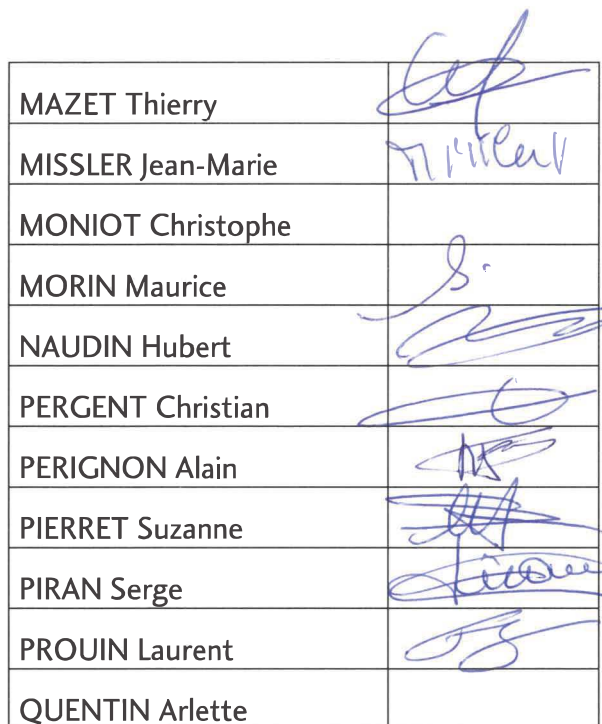 MAZET Thierry
MISSLER Jean-Marie
MONIOT Christophe
MORIN Maurice
NAUDIN Hubert
PERGENT Christian
PERIGNON Alain
PIERRET Suzanne
PIRAN Serge
PROUIN Laurent
QUENTIN Arlette